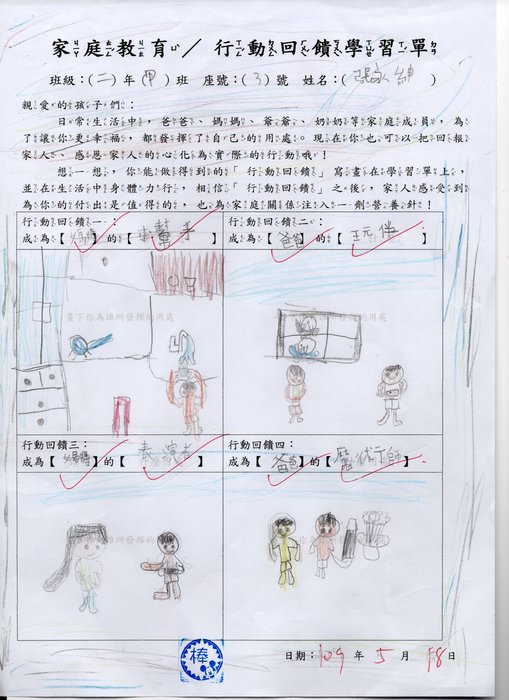 家庭教育／行動回饋學習單
班級：(二)年(甲)班 座號：(3)號 姓名：(張 紳)
親愛的孩子們：
日常生活中，爸爸、媽媽、爺爺、奶奶等家庭成員，為
了讓你更幸福，都發揮了自己的用處。現在你也可以把回報
家人、感恩家人的心化為實際的行動哦！
想一想，你能做得到的「行動回饋」寫畫在學習單上，
並在生活中身體力行，相信「行動回饋」之後，家人感受到
為你的付出是值得的，也為家庭關係注入一劑營養針！
行動回饋一： 行動回饋二：
成為【媽媽】的【小幫手】 成為【爸爸】的【玩伴】
畫下你為誰所發揮的用處 畫下你為誰所發揮的用處
行動回饋三： 行動回饋四：
成為【媽媽】的【表演者】 成為【爸爸】的【魔術師】
畫下你為誰所發揮的用處 畫下你為誰所發揮的用處
棒
日期：109年5月18日